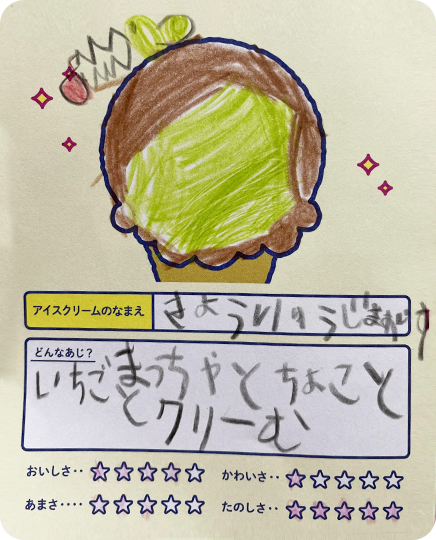 アイスクリームのなまえ
きょうりのうじまがす
どんなあじ？
いちごまっちゃとちょこと
とクリーむ
おいしさ‥ ★★★★☆
かわいさ‥ ★☆☆☆☆
あまさ‥‥ ★★★☆☆
たのしさ‥ ★★★★★